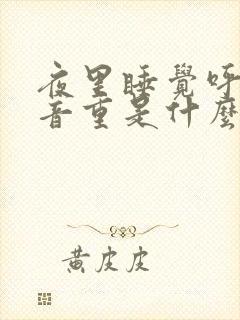 夜里睡覺呼
音重是什麼
黃皮皮